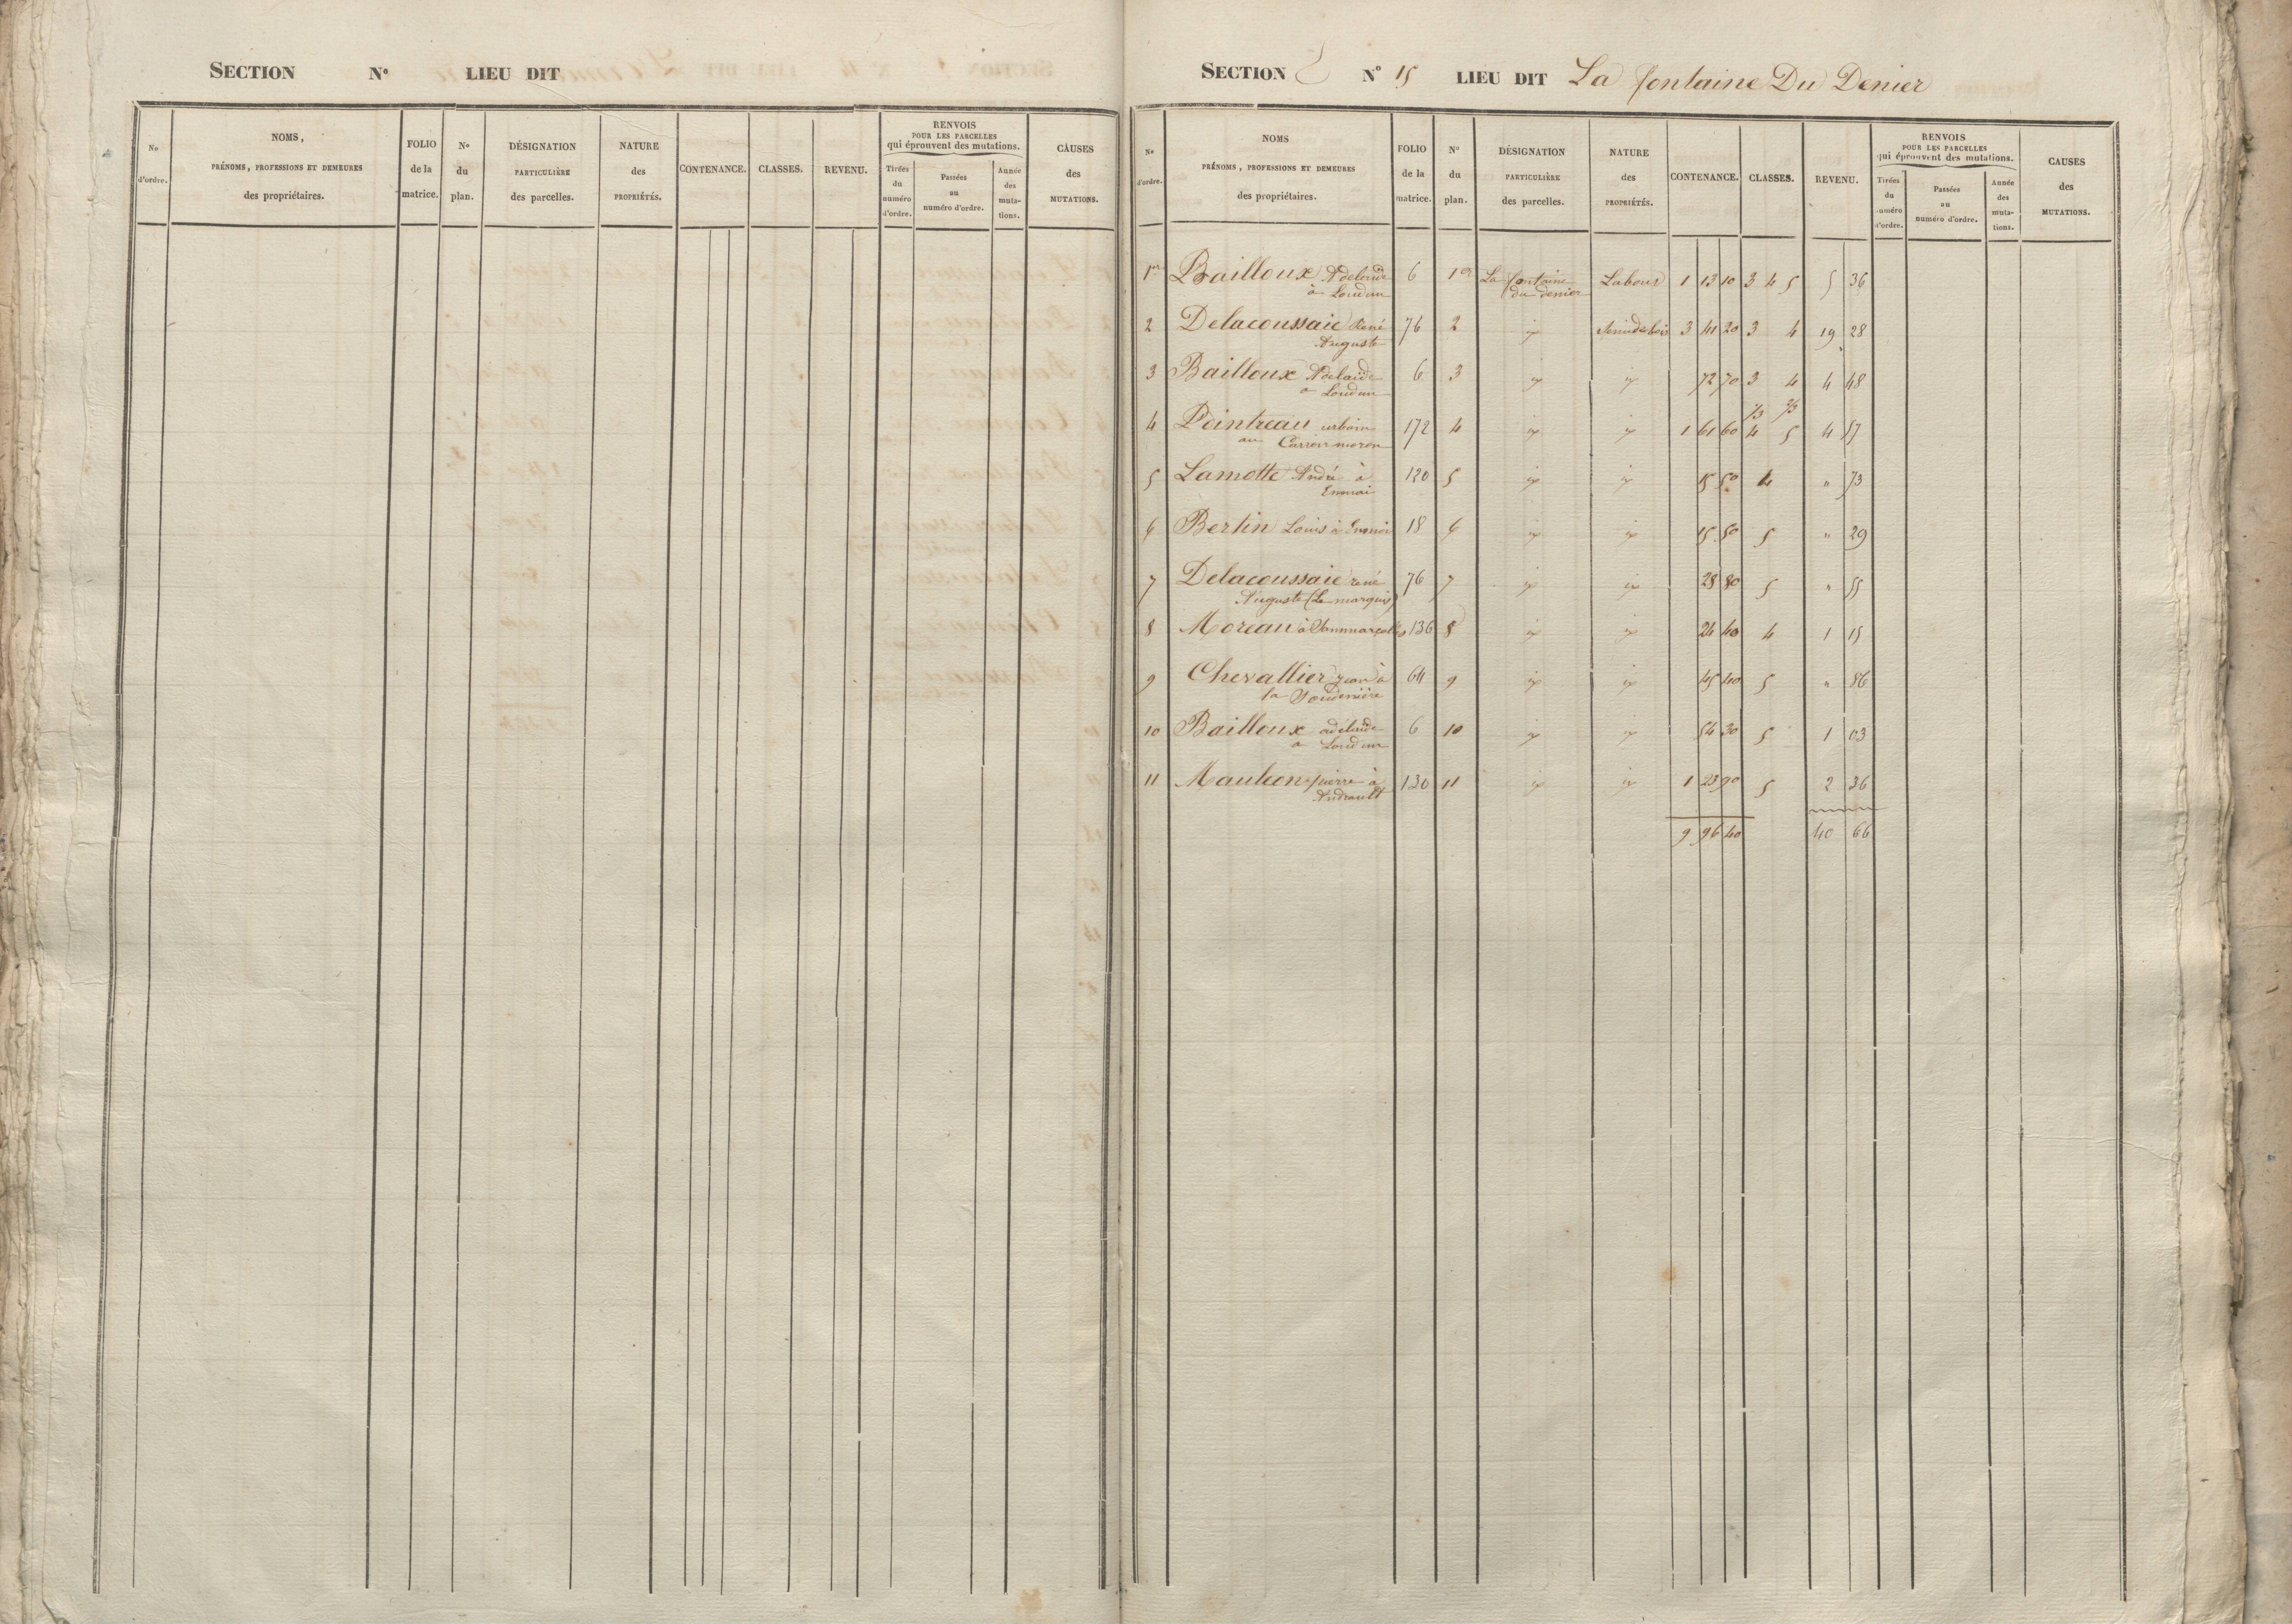 SECTION N° LIEU DIT
No d'ordre.
NOMS,
PRÉNOMS, PROFESSIONS ET DEMEURES
des propriétaires.
FOLIO de la matrice.
No du plan.
DÉSIGNATION PARTICULIÈRE des parcelles.
NATURE des PROPRIÉTÉS.
CONTENANCE.
CLASSES.
REVENU.
RENVOIS
POUR LES PARCELLES
qui éprouvent des mutations.
Tirées du numéro d'ordre.
Passées au numéro d'ordre.
Année des mutations.
CAUSES des MUTATIONS.
SECTION E N° 15 LIEU DIT La fontaine Du Denier
No d'ordre.
NOMS
PRÉNOMS, PROFESSIONS ET DEMEURES
des propriétaires.
FOLIO de la matrice.
No du plan.
DÉSIGNATION PARTICULIÈRE des parcelles.
NATURE des PROPRIÉTÉS.
CONTENANCE.
CLASSES.
REVENU.
RENVOIS
POUR LES PARCELLES
qui éprouvent des mutations.
Tirées du numéro d'ordre.
Passées au numéro d'ordre.
Année des mutations.
CAUSES des MUTATIONS.
1er Bailloux Adelaide 6 1er La fontaine Labour 1 13 10 3 4 5 5 36
à Loudun du denier
2 Delacoussaie René 76 2 3 41 20 3 4 19 28
Auguste
3 Bailloux Adelaïde 6 3 72 70 3 4 4 48
a Loudun
1/3 2/3
4 Pointreau urbain 172 4 1 61 60 4 5 4 57
au
5 Lamotte André à 120 5 15 50 4 " 73
6 Bertin Louis à 18 6 15 50 5 " 29
7 Delacoussaie rené 76 7 28 80 5 " 55
Auguste (Le marquis)
8 Moreau à 136 8 24 40 4 1 15
9 Chevallier jean à 64 9 45 40 5 " 86
la
10 Bailloux adélaide 6 10 54 30 5 1 03
a Loudun
11 Mauleon pierre à 130 11 1 23 90 5 2 36
Andrault
9 96 40 40 66